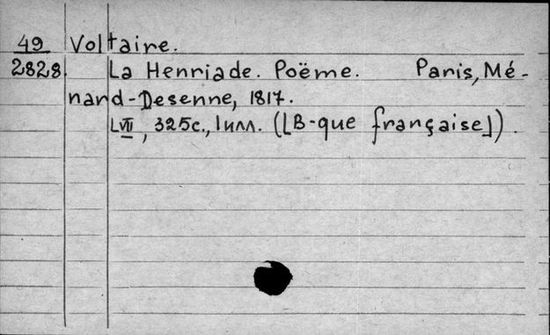 49 Voltaire.
2828. La Henriade. Poëme. Paris, Mé-
nard-Desenne, 1817.
LVII, 325с., 1илл. ([B-que française]).